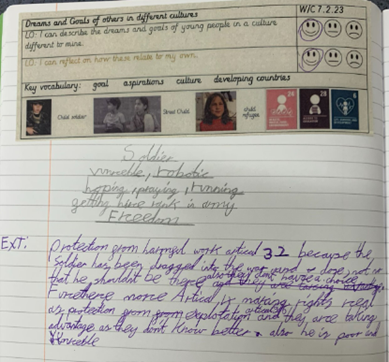 Dreams and Goals of others in different cultures
W/C 7.2.23
LO: I can describe the dreams and goals of young people in a culture
different to mine.
LO: I can reflect on how these relate to my own.
Key vocabulary: goal aspirations culture developing countries
Child soldier
Street Child
child
refugee
Soldier
, robotic
hoping, praying, running
getting rank in army
Freedom
EXT: Protection from harmful work artical 32 because the
Soldier has been dragged into the war and dose not
that he shouldnt be there also they dont have a choice
Furthere more Artical is making rights real
as protection from from exploitation and they are taking
advantage as they dont know better & also he is poor and